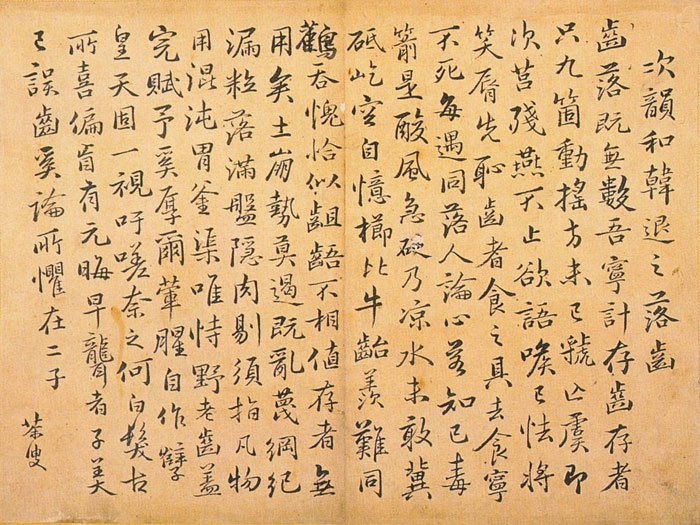 次韻和韓退之落齒
齒落既無數吾寧計存齒存者
只九箇動搖方未已虢亡虞即
次莒殘燕不止欲語唉已怯將
笑脣先恥齒者食之具去食寧
不死每遇同落人論心若知已毒
箭是酸風急乃凉水未敢冀
砥屹空自憶櫛比牛齝羨難同
鸛吞愧恰似齟齬不相值存者無
用矣土崩勢莫遏既亂蔑綱紀
漏粒落滿盤隱肉剔須指凡物
用混沌胃釜渠唯恃野老齒蓋
完賦予奚厚爾葷腥自作孽
皇天固一視吁嗟奈之何白髮古
所喜偏盲有元晦早聾者子美
已誤齒奚論所懼在二子
茶叟